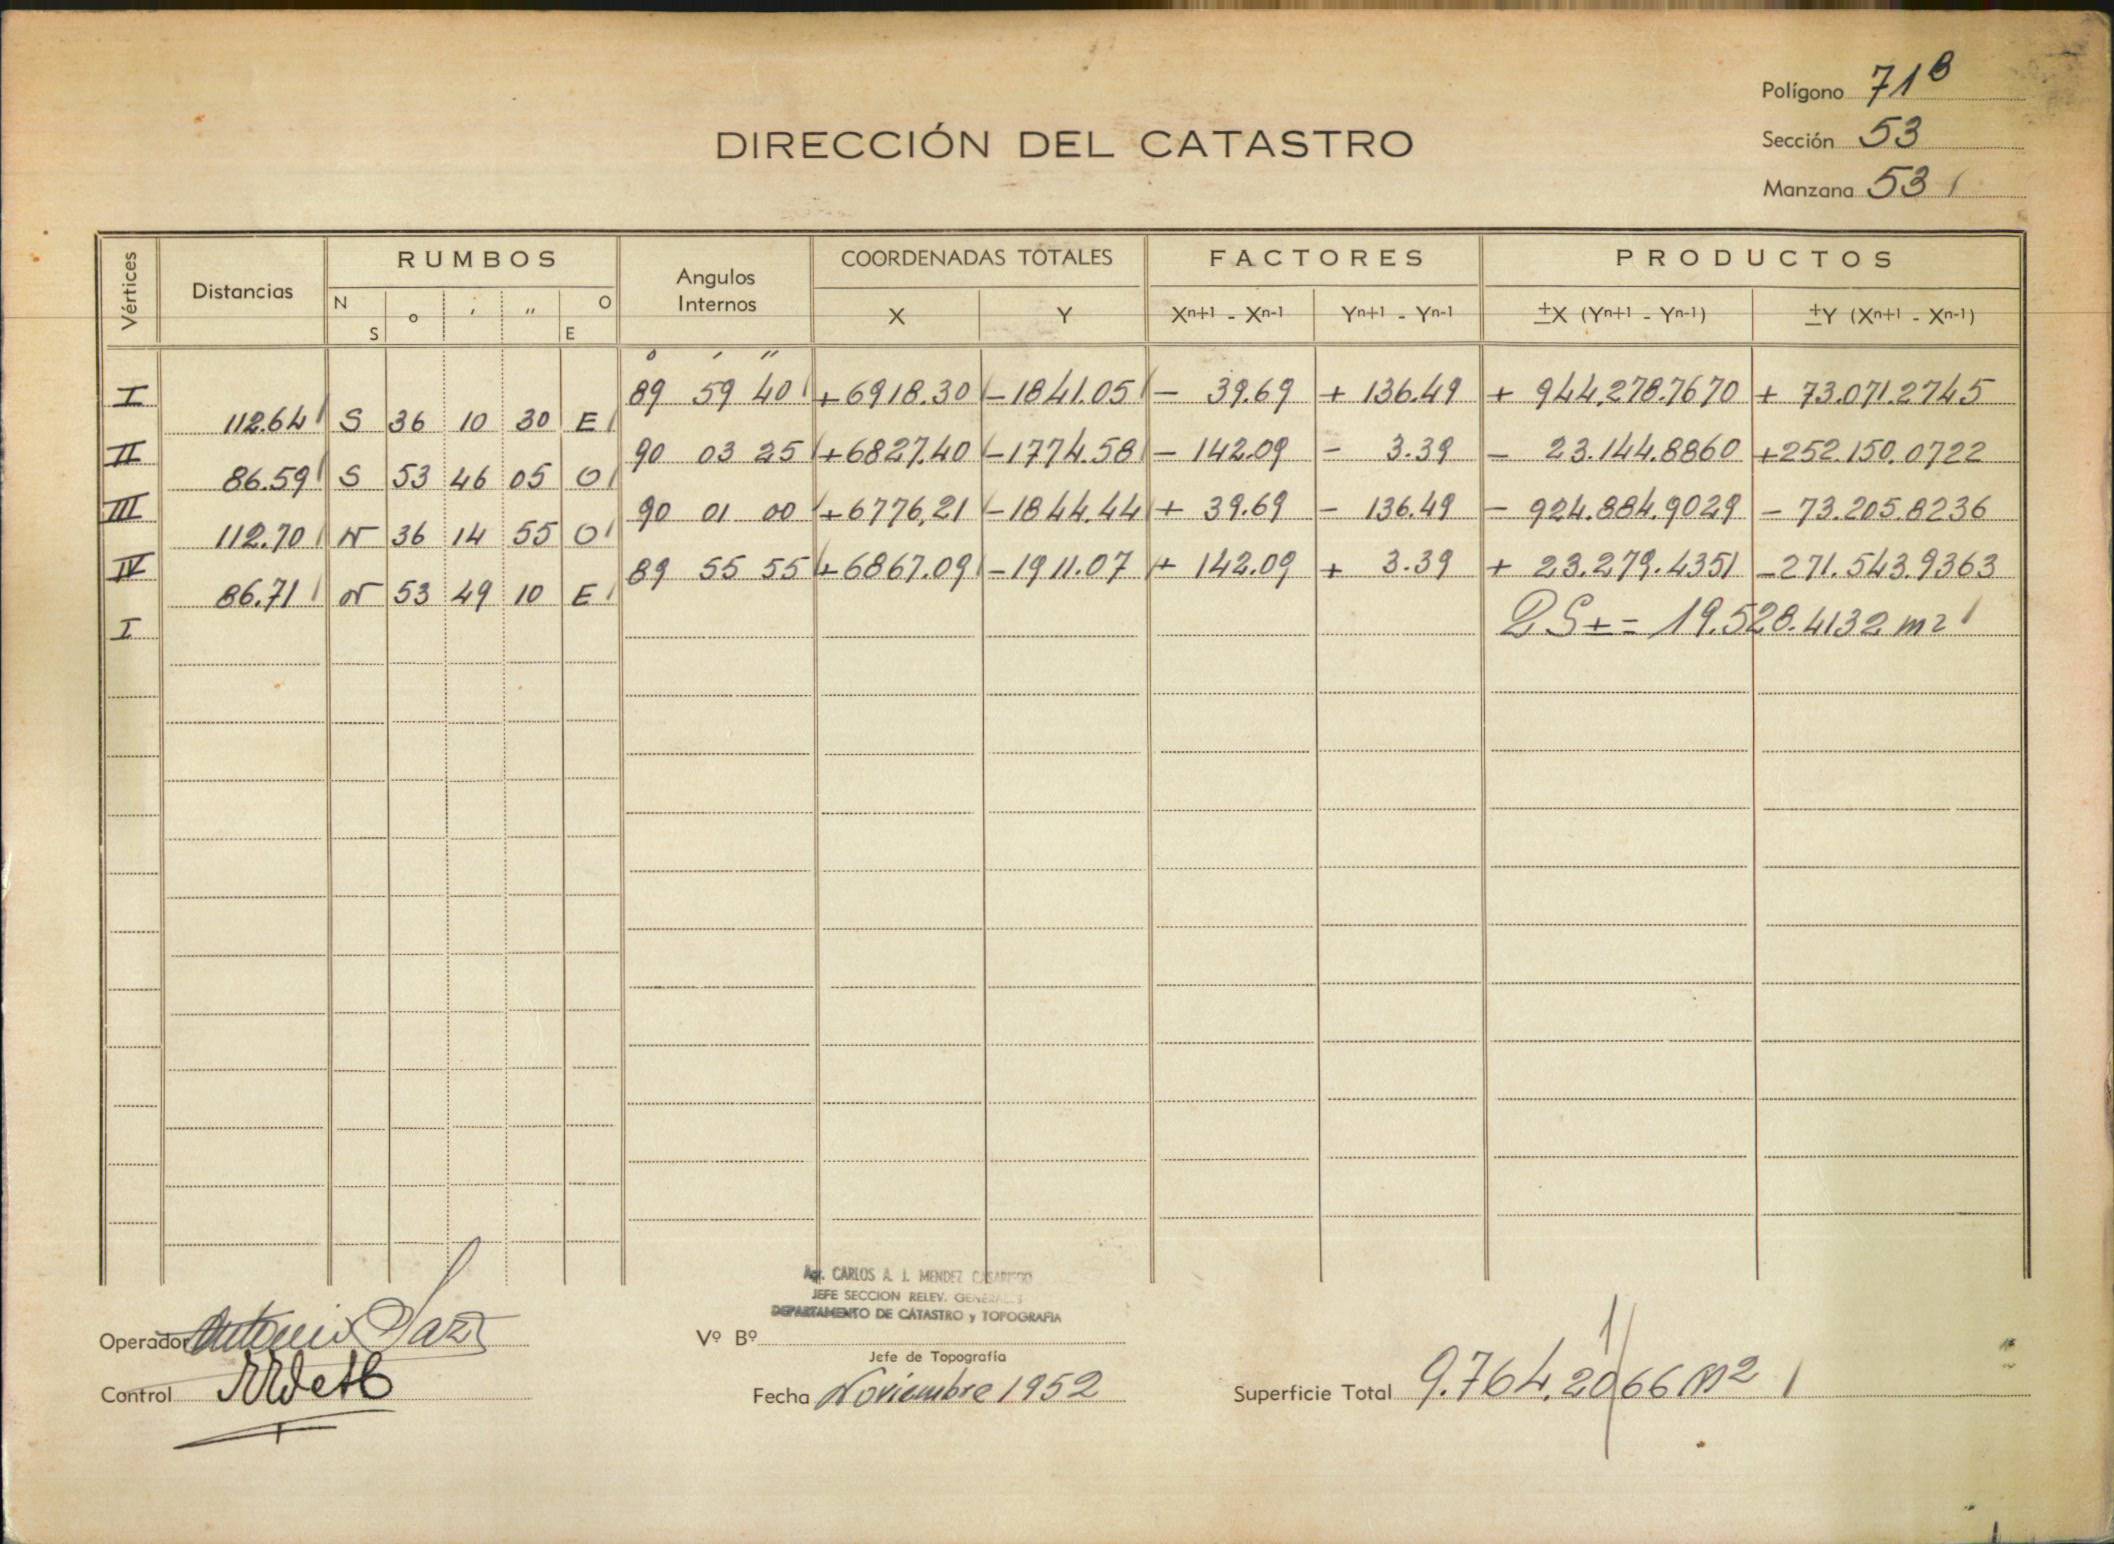 Polígono 71B
DIRECCIÓN DEL CATASTRO
Sección 53
Manzana 53
Vértices Distancias RUMBOS Angulos Internos COORDENADAS TOTALES FACTORES PRODUCTOS
N S o ' " O E X Y Xn+1 - Xn-1 Yn+1 - Yn-1 ±X (Yn+1 - Yn-1) ±Y (Xn+1 - Xn-1)
o ' "
I 89 59 40 +6918.30 -1841.05 - 39.69 + 136.49 + 944,278.7670 + 73.071.2745
112.64 S 36 10 30 E
II 90 03 25 +6827.40 -1774.58 - 142.09 - 3.39 - 23.144.8860 +252.150.0722
86.59 S 53 46 05 O
III 90 01 00 +6776,21 -1844.44 + 39.69 - 136.49 - 924.884.9029 - 73.205.8236
112.70 N 36 14 55 O
IV 89 55 55 +6867.09 -1911.07 + 142.09 + 3.39 + 23.279.4351 -271.543.9363
86.71 N 53 49 10 E
I 2S± = 19.528.4132 m2
Agr. CARLOS A. J. MENDEZ CASARIEGO
JEFE SECCION RELEV. GENERALES
DEPARTAMENTO DE CATASTRO y TOPOGRAFIA
Operador Antonio
Vº Bº
Jefe de Topografía
Control
Fecha Noviembre 1952
Superficie Total 9.764.2066 m2